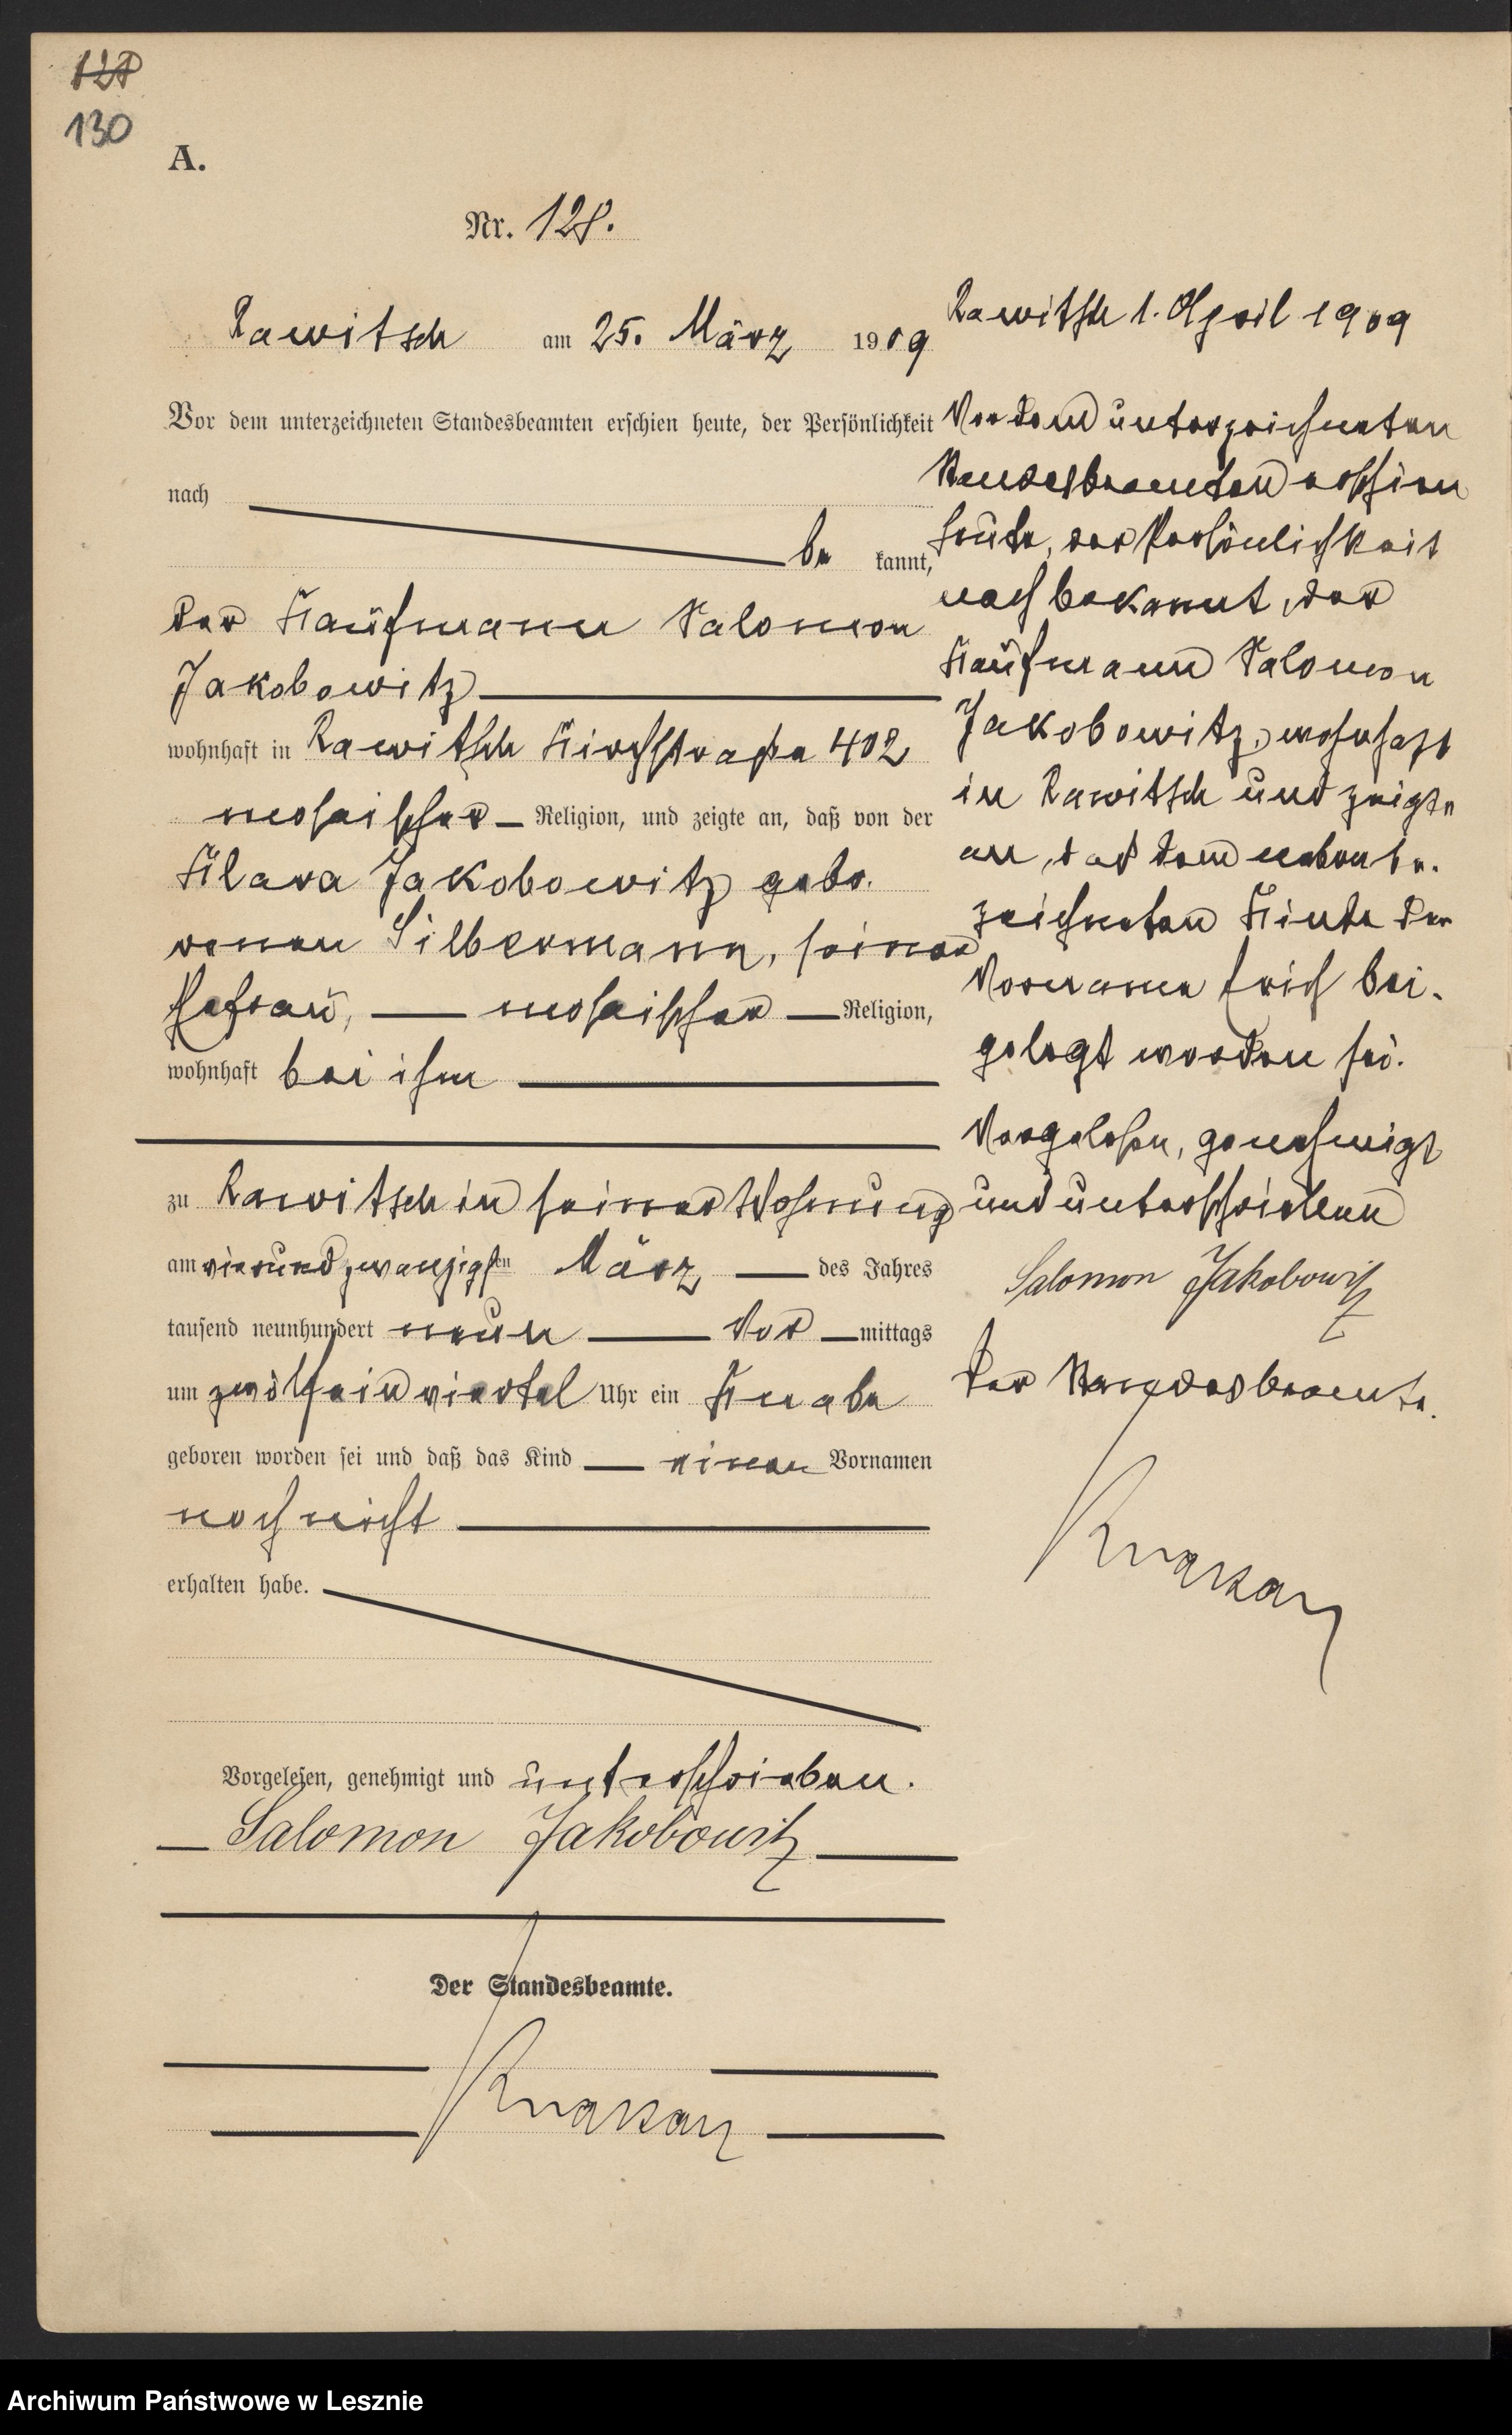 130
A.
Nr. 128.
Rawitsch am 25. März 1909
Vor dem unterzeichneten Standesbeamten erschien heute, der Persönlichkeit
nach
be kannt,
der Kaufmann Salomon
Jakobowitz
wohnhaft in Rawitsch Kirchstraße 402
mosaischer Religion, und zeigte an, daß von der
Klara Jakobowitz gebo-
renen Silbermann, seiner
Ehefrau, mosaischer Religion,
wohnhaft bei ihm
zu Rawitsch in seiner Wohnung
am vierundzwanzigsten März des Jahres
tausend neunhundert neun Vor mittags
um zwölfeinviertel Uhr ein Knabe
geboren worden sei und daß das Kind einen Vornamen
noch nicht
erhalten habe.
Vorgelesen, genehmigt und unterschrieben.
Salomon Jakobowitz
Der Standesbeamte.
Rawitsch 1. April 1909
Vor dem unterzeichneten
Standesbeamten erschien
heute, der Persönlichkeit
nach bekannt, der
Kaufmann Salomon
Jakobowitz, wohnhaft
in Rawitsch und zeigte
an, daß dem nebenbe-
zeichneten Kinde der
Vorname Erich bei-
gelegt worden sei.
Vorgelesen, genehmigt
und unterschrieben
Salomon Jakobowitz
Der Standesbeamte.
Archiwum Państwowe w Lesznie